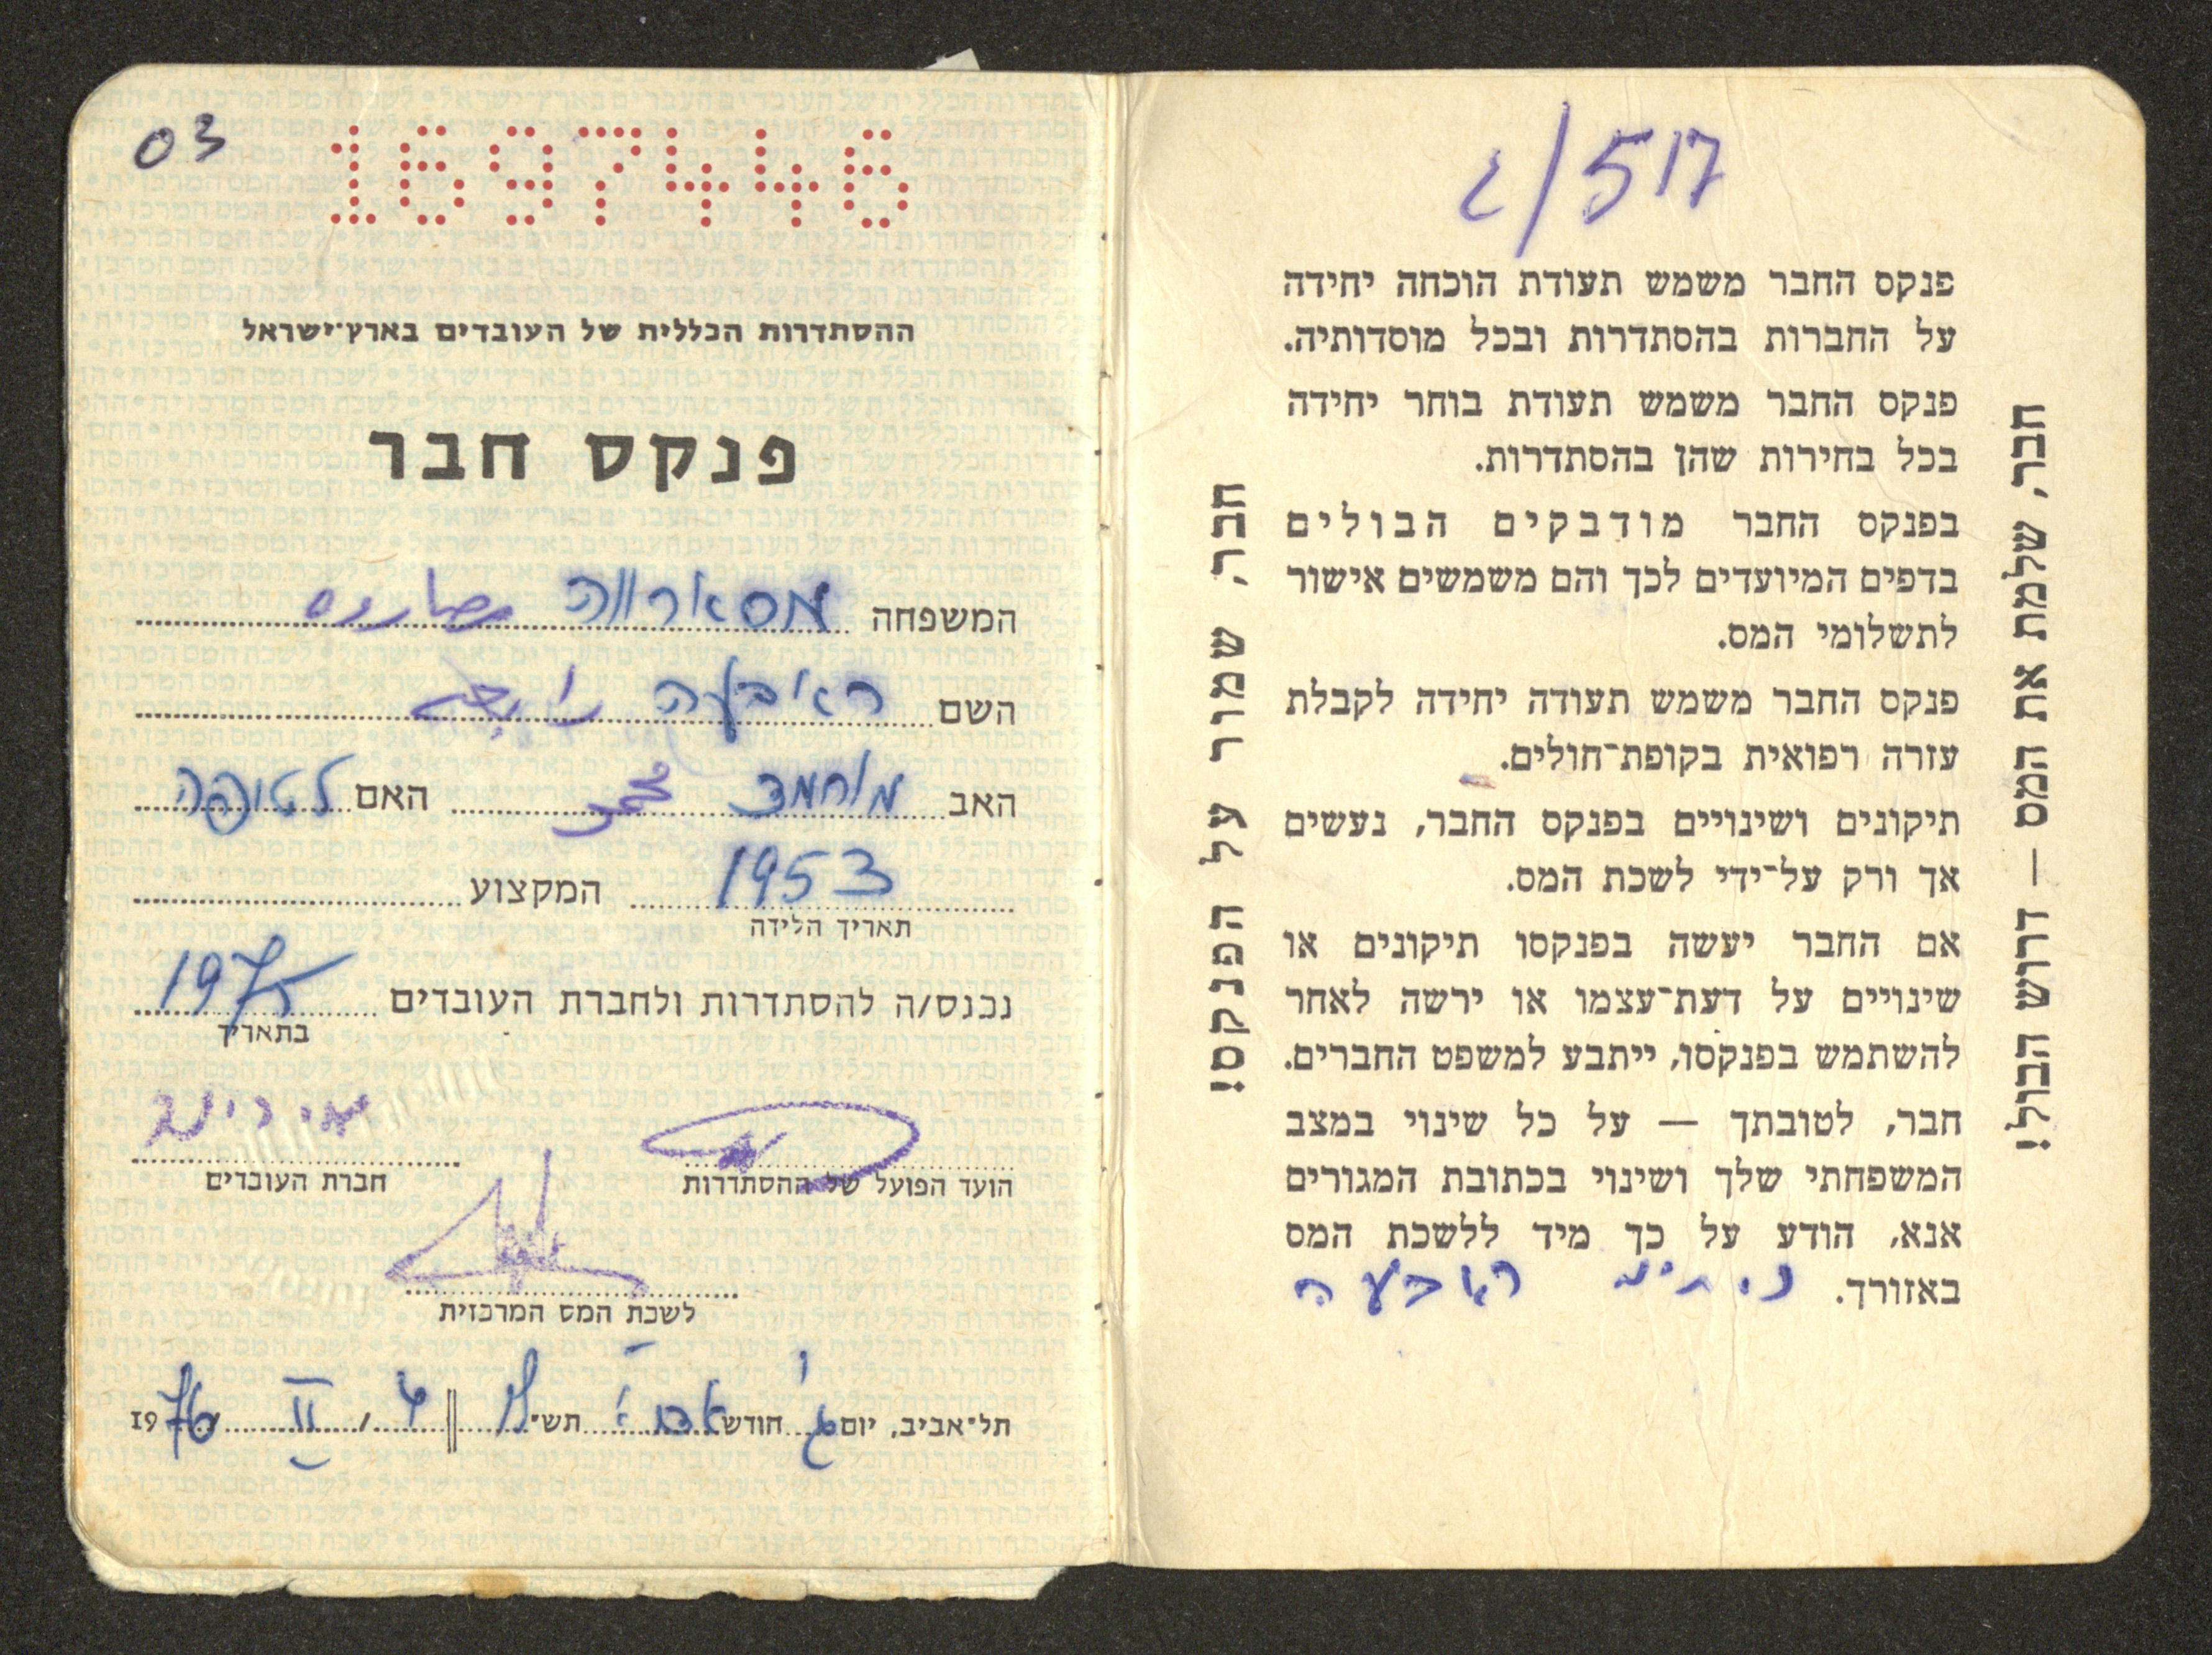 517/ג
פנקס החבר משמש תעודת הוכחה יחידה
על החברות בהסתדרות ובכל מוסדותיה.
פנקס החבר משמש תעודת בוחר יחידה
בכל בחירות שהן בהסתדרות.
בפנקס החבר מודבקים הבולים
בדפים המיועדים לכך והם משמשים אישור
לתשלומי המס.
פנקס החבר משמש תעודה יחידה לקבלת
עזרה רפואית בקופת־חולים.
תיקונים ושינויים בפנקס החבר, נעשים
אך ורק על־ידי לשכת המס.
אם החבר יעשה בפנקסו תיקונים או
שינויים על דעת־עצמו או ירשה לאחר
להשתמש בפנקסו, ייתבע למשפט החברים.
חבר, לטובתך — על כל שינוי במצב
המשפחתי שלך ושינוי בכתובת המגורים
אנא, הודע על כך מיד ללשכת המס
באזורך.
חבר, שלמת את המס — דרוש הבול!
חבר, שמור על הפנקס!
03 1697446
ההסתדרות הכללית של העובדים בארץ־ישראל
פנקס חבר
המשפחה מסארווה مصاروه
השם ראיבעה
האב מוחמד محمد האם לטיפה
1953 המקצוע
תאריך הלידה
נכנס/ה להסתדרות ולחברת העובדים 1975
בתאריך
הועד הפועל של ההסתדרות חברת העובדים
לשכת המס המרכזית
תל־אביב, יום ג' חודש אדר א' תש״ II 1976